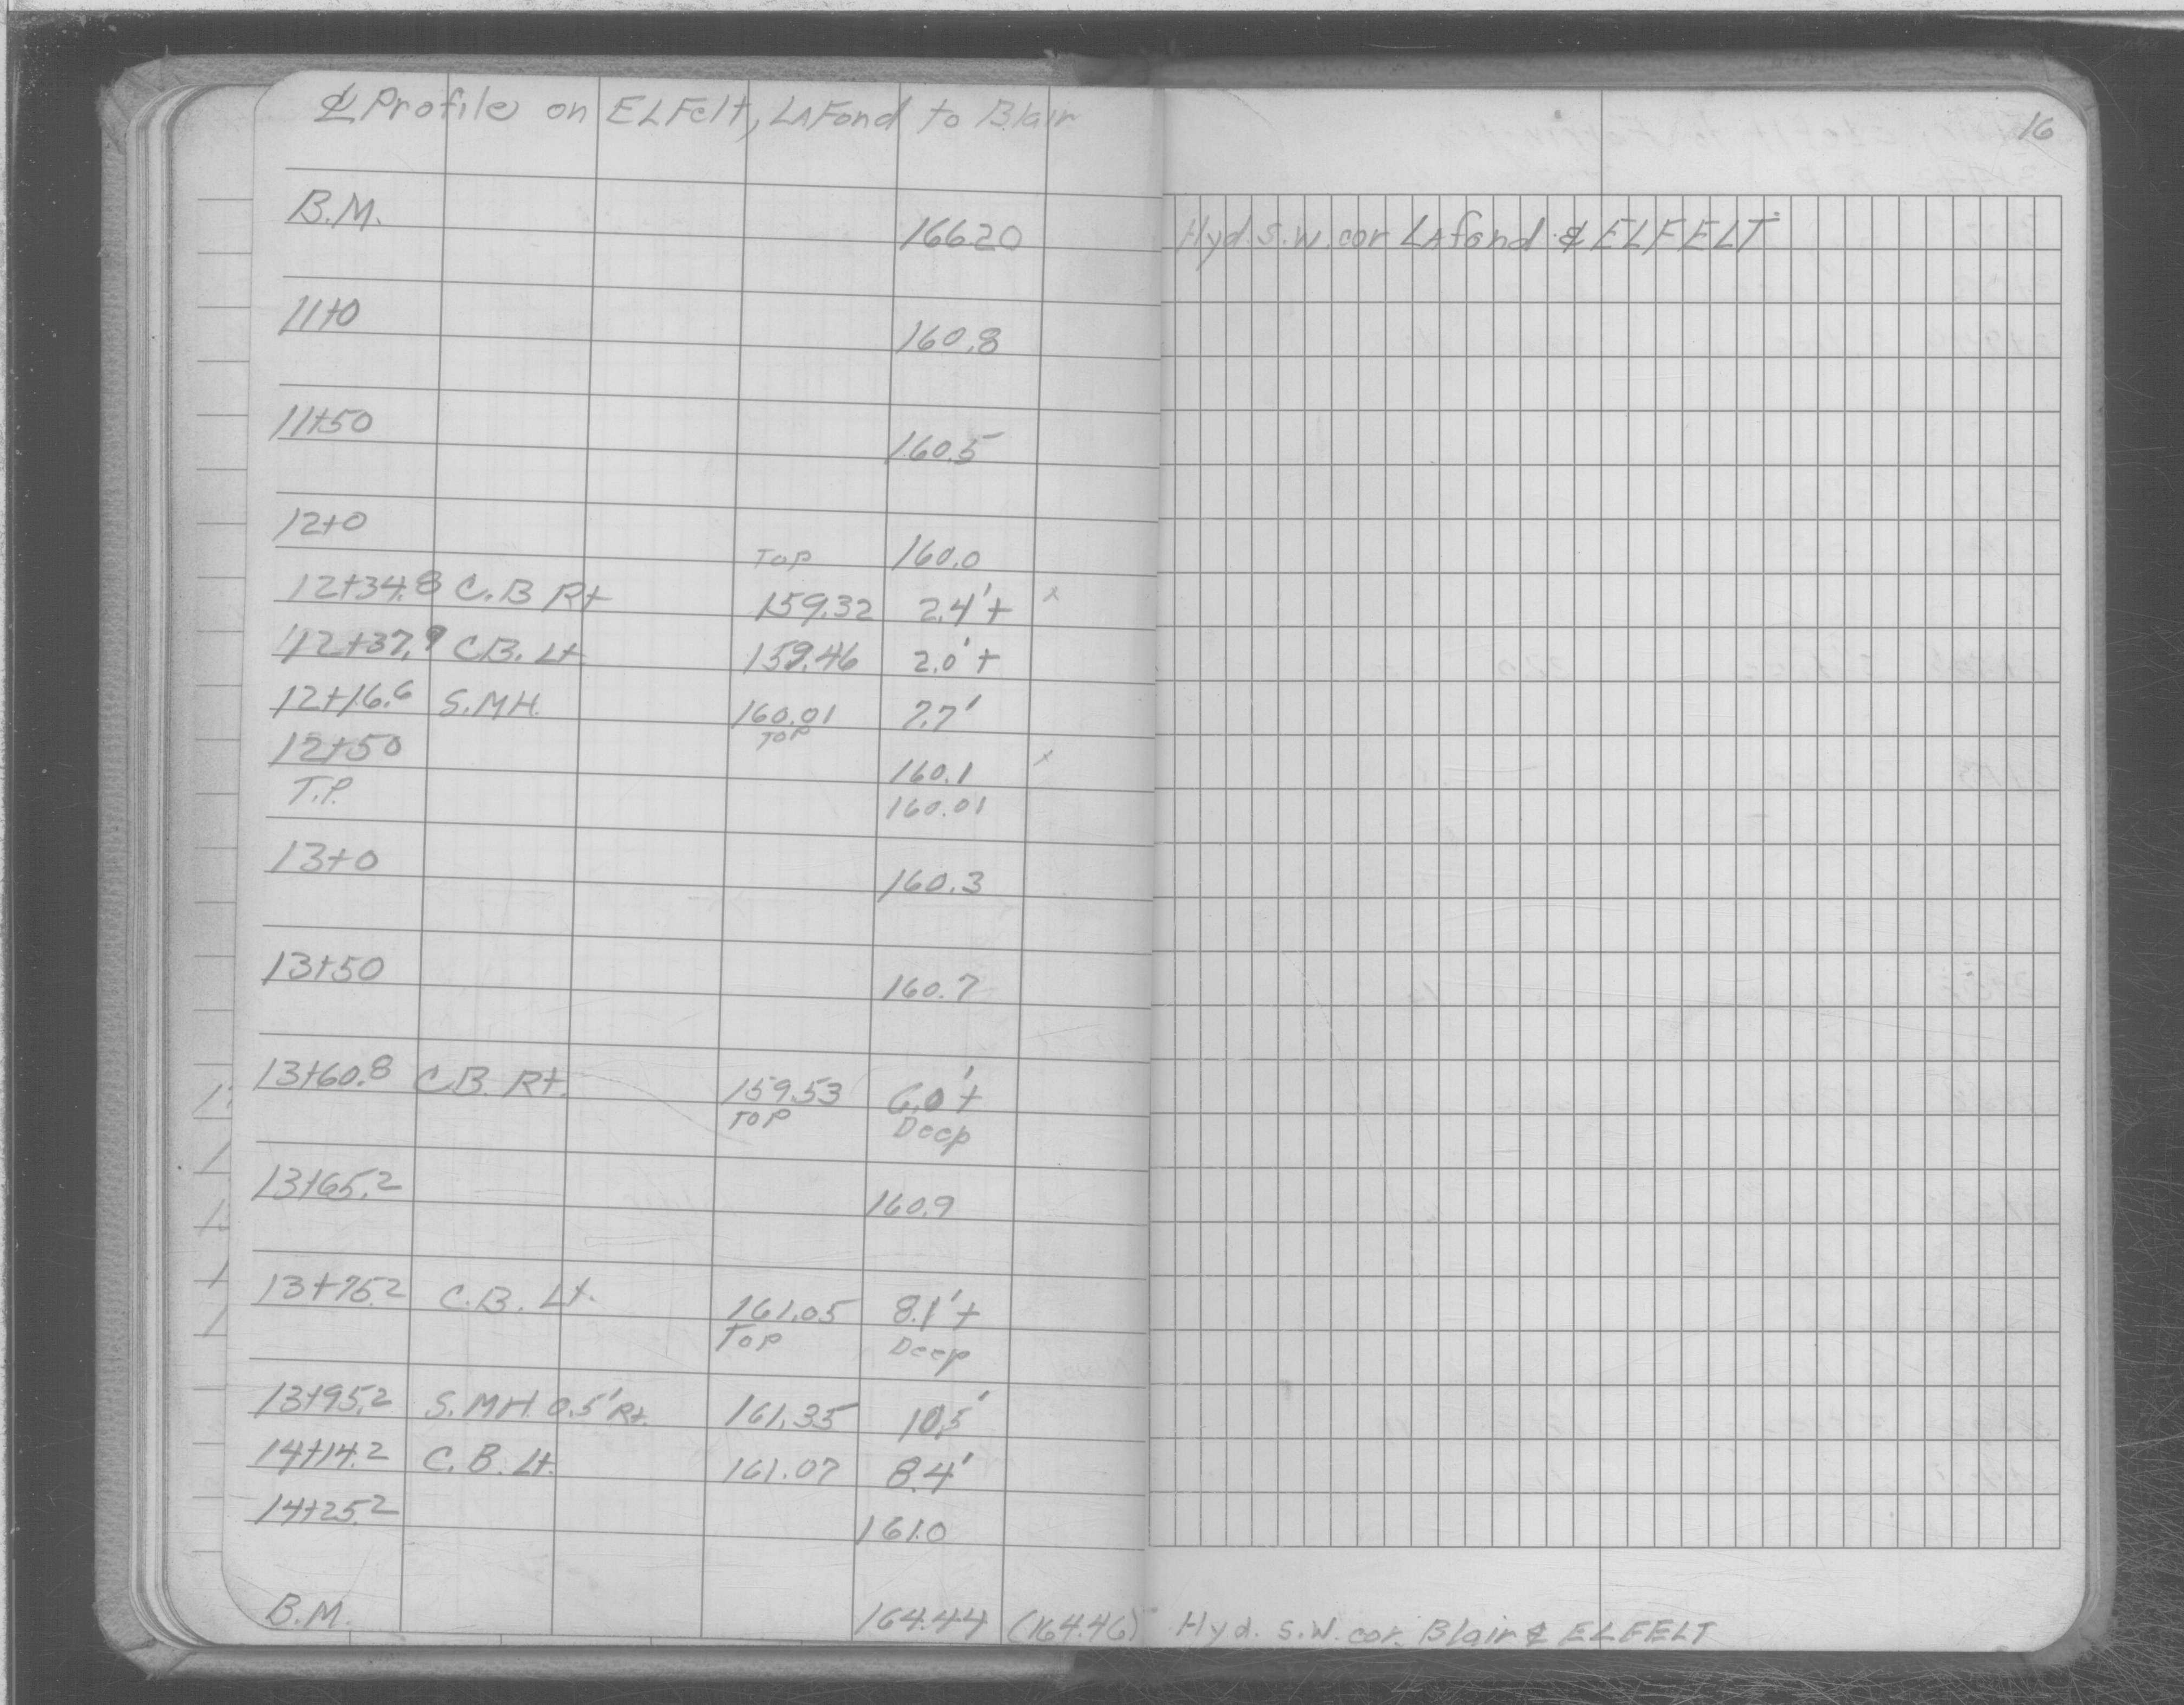 ℄ Profile on ELFelt, LAFond to Blair
16
B.M. 166.20 Hyd. S.W. cor LAfond & ELFELT
11+0 160.8
11+50 160.5
12+0 160.0
TOP
12+34.8 C.B Rt 159.32 2.4'+ x
12+37.9 C.B. Lt 159.46 2.0'+
12+16.6 S.MH. 160.01 7.7'
TOP
12+50 160.1 x
T.P. 160.01
13+0 160.3
13+50 160.7
13+60.8 C.B. Rt. 159.53 6.0'+
TOP Deep
13+65.2 160.9
13+75.2 C.B. Lt. 161.05 8.1'+
TOP Deep
13+95.2 S.MH. 0.5' Rt. 161.35 10.5'
14+14.2 C.B. Lt. 161.07 8.4'
14+25.2 161.0
B.M. 164.44 (164.46) Hyd. S.W. cor. Blair & ELFELT